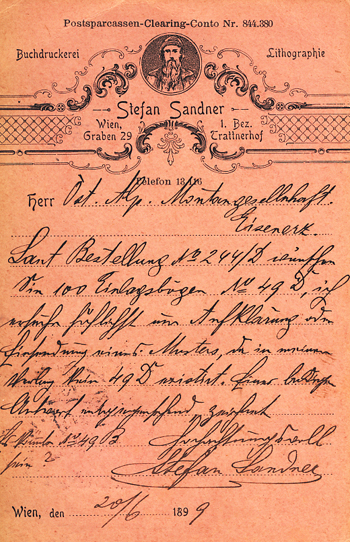 Postsparcassen-Clearing-Conto Nr. 844.380
Buchdruckerei
Lithographie
Stefan Sandner
Wien,
Graben 29
I. Bez.
Trattnerhof
Telefon 13.416
Herr Öst. Alp. Montangesellschaft.
Eisenerz.
Laut Bestellung No 244/D wünschen
Sie 100 Einlagsbögen No 49 D, ich
ersuche höflichst um Aufklärung oder
Einsendung eines Musters, da in meinem
Verlag kein 49 D existirt. Einer
Antwort entgegensehend, zeichnet
No 49 B
Hochachtungsvoll
sein?
Stefan Sandner
Wien, den 20/6 1899